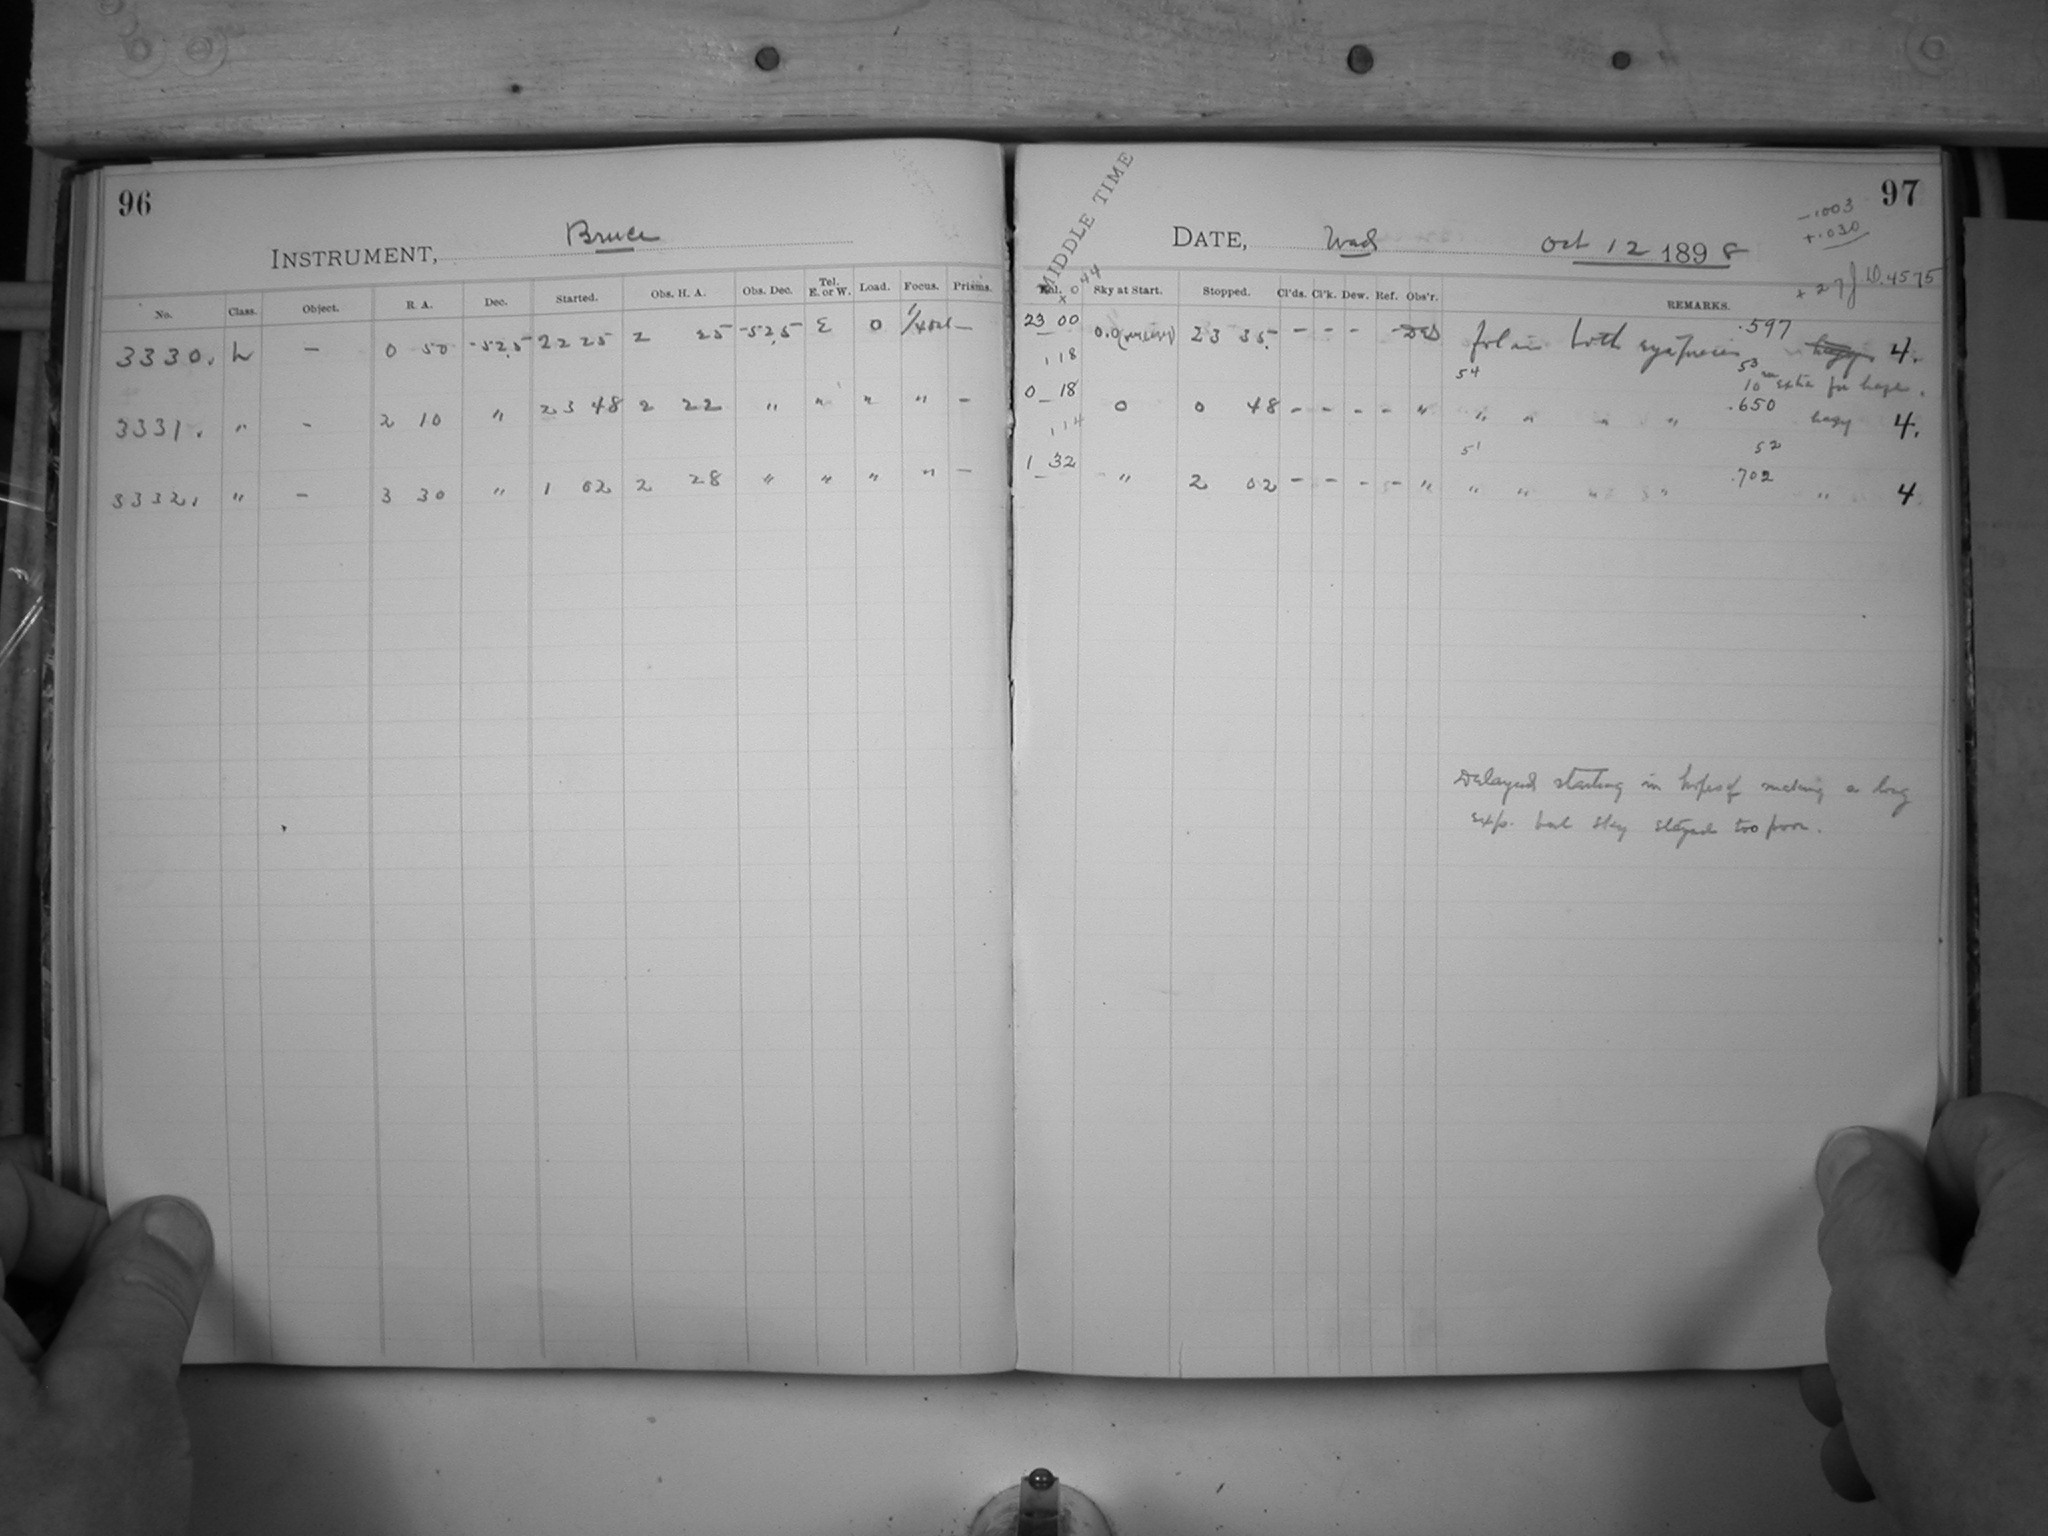 96
INSTRUMENT, Bruce
No. Class. Object. R. A. Dec. Started. Obs. H. A. Obs. Dec. Tel. E. or W. Load. Focus. Prisms.
3330. L – 0 50 -52.5 22 25 2 25 -52.5 E 0 –
3331. " – 2 10 " 23 48 2 22 " " " " –
3332. " – 3 30 " 1 02 2 28 " " " " –
97
MIDDLE TIME
DATE, Wed Oct 12 1898
-.1003
+.030
+27
10.4575
44
Sky at Start. Stopped. Cl'ds. Cl'k. Dew. Ref. Obs'r. REMARKS.
23 00 0.0 23 35 – – – – both .597 4.
1 18 54 53
10m extra for haze.
0 18 0 0 48 – – – – " " " " " .650 hazy 4.
1 14 51 52
1 32 " 2 02 – – – – " " " " " .702 " 4
Delayed starting in hopes of making a long
exp. but sky stayed too poor.